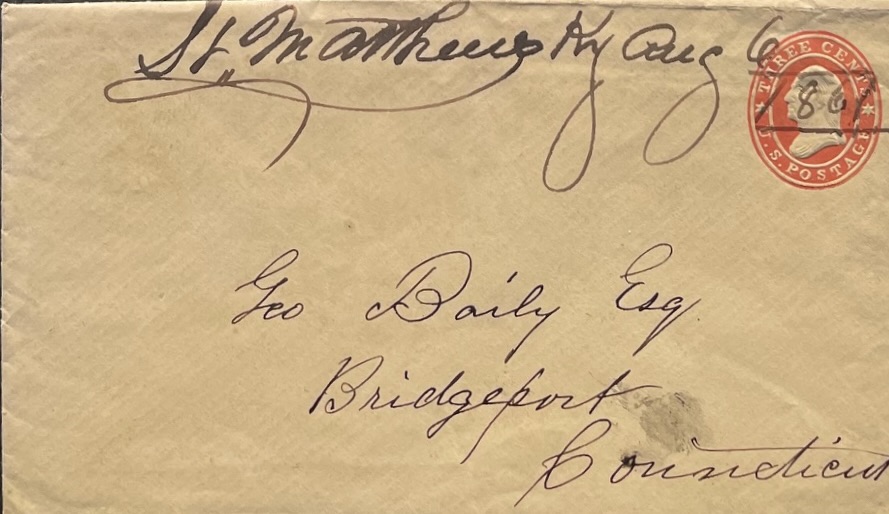 St. Matthews Ky Aug 6
THREE CENTS
186
U.S. POSTAGE
Geo Baily Esq
Bridgeport
Connecticut